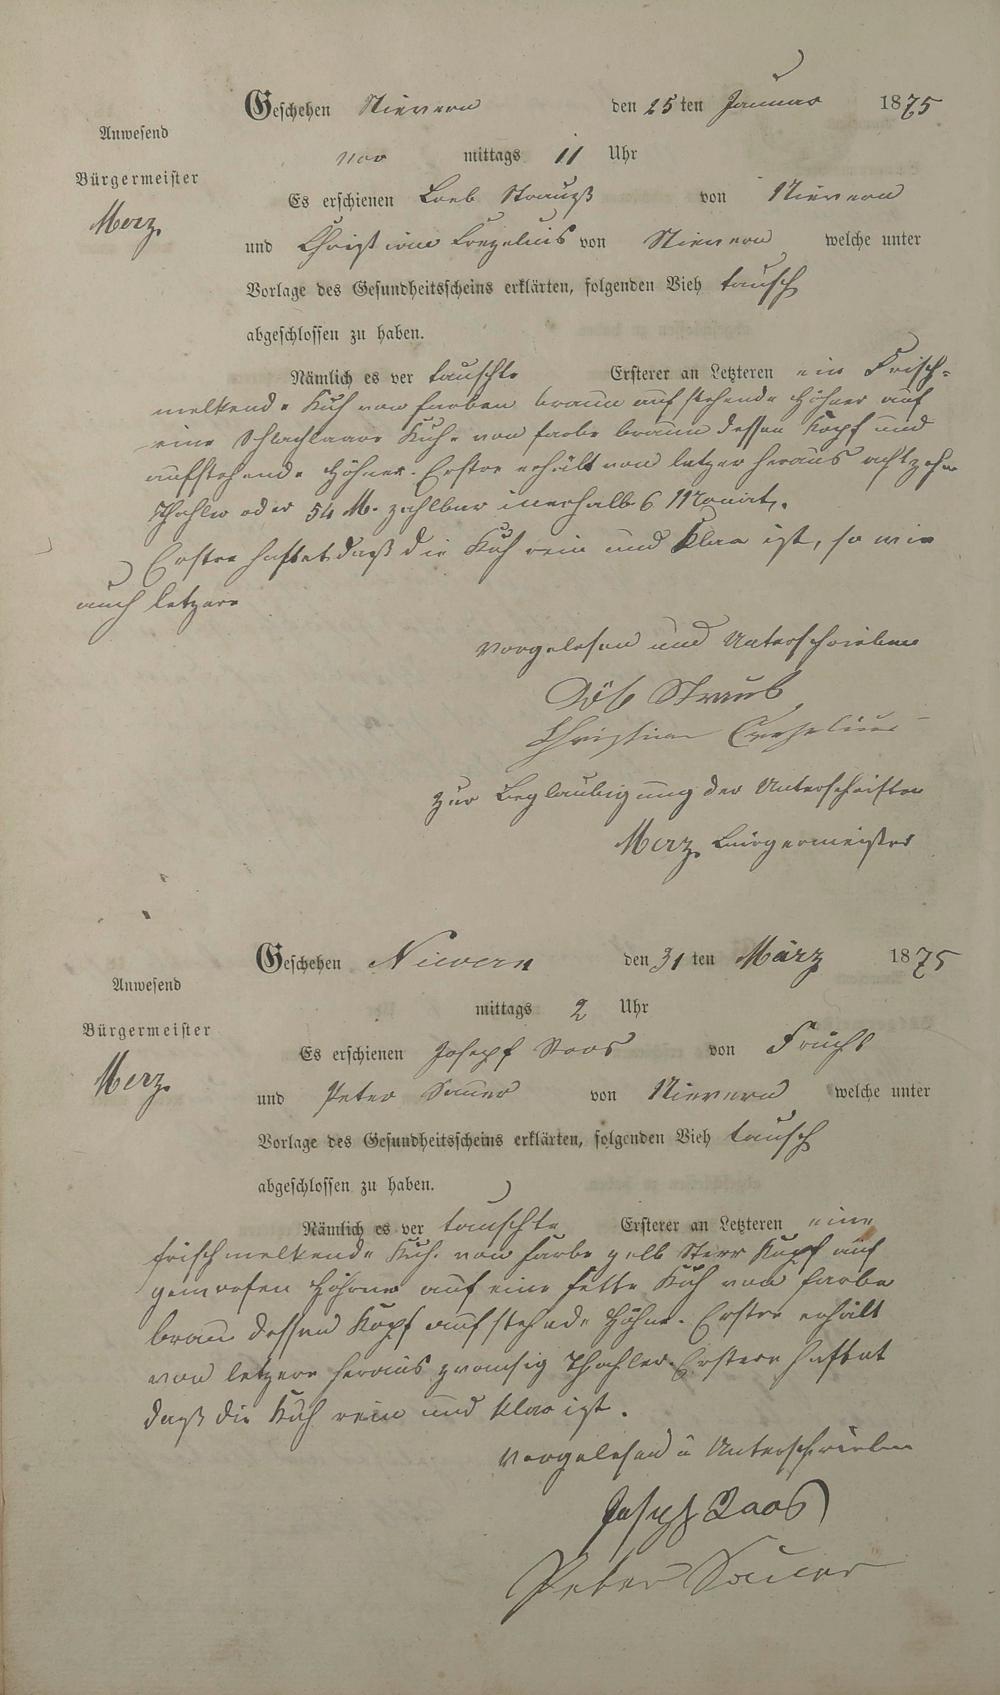 Geschehen Nievern den 25 ten Januar 1875
Anwesend
vor mittags 11 Uhr
Bürgermeister
Es erschienen Loeb Strauß von Nievern
Merz.
und Christian von Nievern welche unter
Vorlage des Gesundheitsscheins erklärten, folgenden Vieh tausch
abgeschlossen zu haben.
Nämlich es ver tauschte Ersterer an Letzteren ein Frisch-
melkende Kuh von farben braun aufstehende Höhner auf
eine Kuh von farbe braun dessen Kopf und
aufstehende Höhner. Erstre erhält von letzer heraus achtzehn
Thahler oder 54 M. zahlbar inerhalb 6 Monat.
Erstre haftet daß die Kuh rein und klar ist, so wie
auch letzere
vorgelesen und Unterschrieben
Straus
Christian
zur Beglaubigung der Unterschriften
Merz Bürgermeister
Geschehen Nievern den 31 ten März 1875
Anwesend
mittags 2 Uhr
Bürgermeister
Es erschienen Josepf Roos von Frücht
Merz.
und Peter Sauer von Nievern welche unter
Vorlage des Gesundheitsscheins erklärten, folgenden Vieh tausch
abgeschlossen zu haben.
Nämlich es ver tauschte Ersterer an Letzteren eine
frischmelkende Kuh von farbe gelb Kopf auf
geworfen Höhrner auf eine fette Kuh von farbe
braun dessen Kopf aufstehende Höhne. Erstre erhält
von letzere heraus zwansig Thahler. Erstere haftet
daß die Kuh rein und klar ist.
vorgelesen u Unterschrieben
Joseph Roos
Peter Sauer